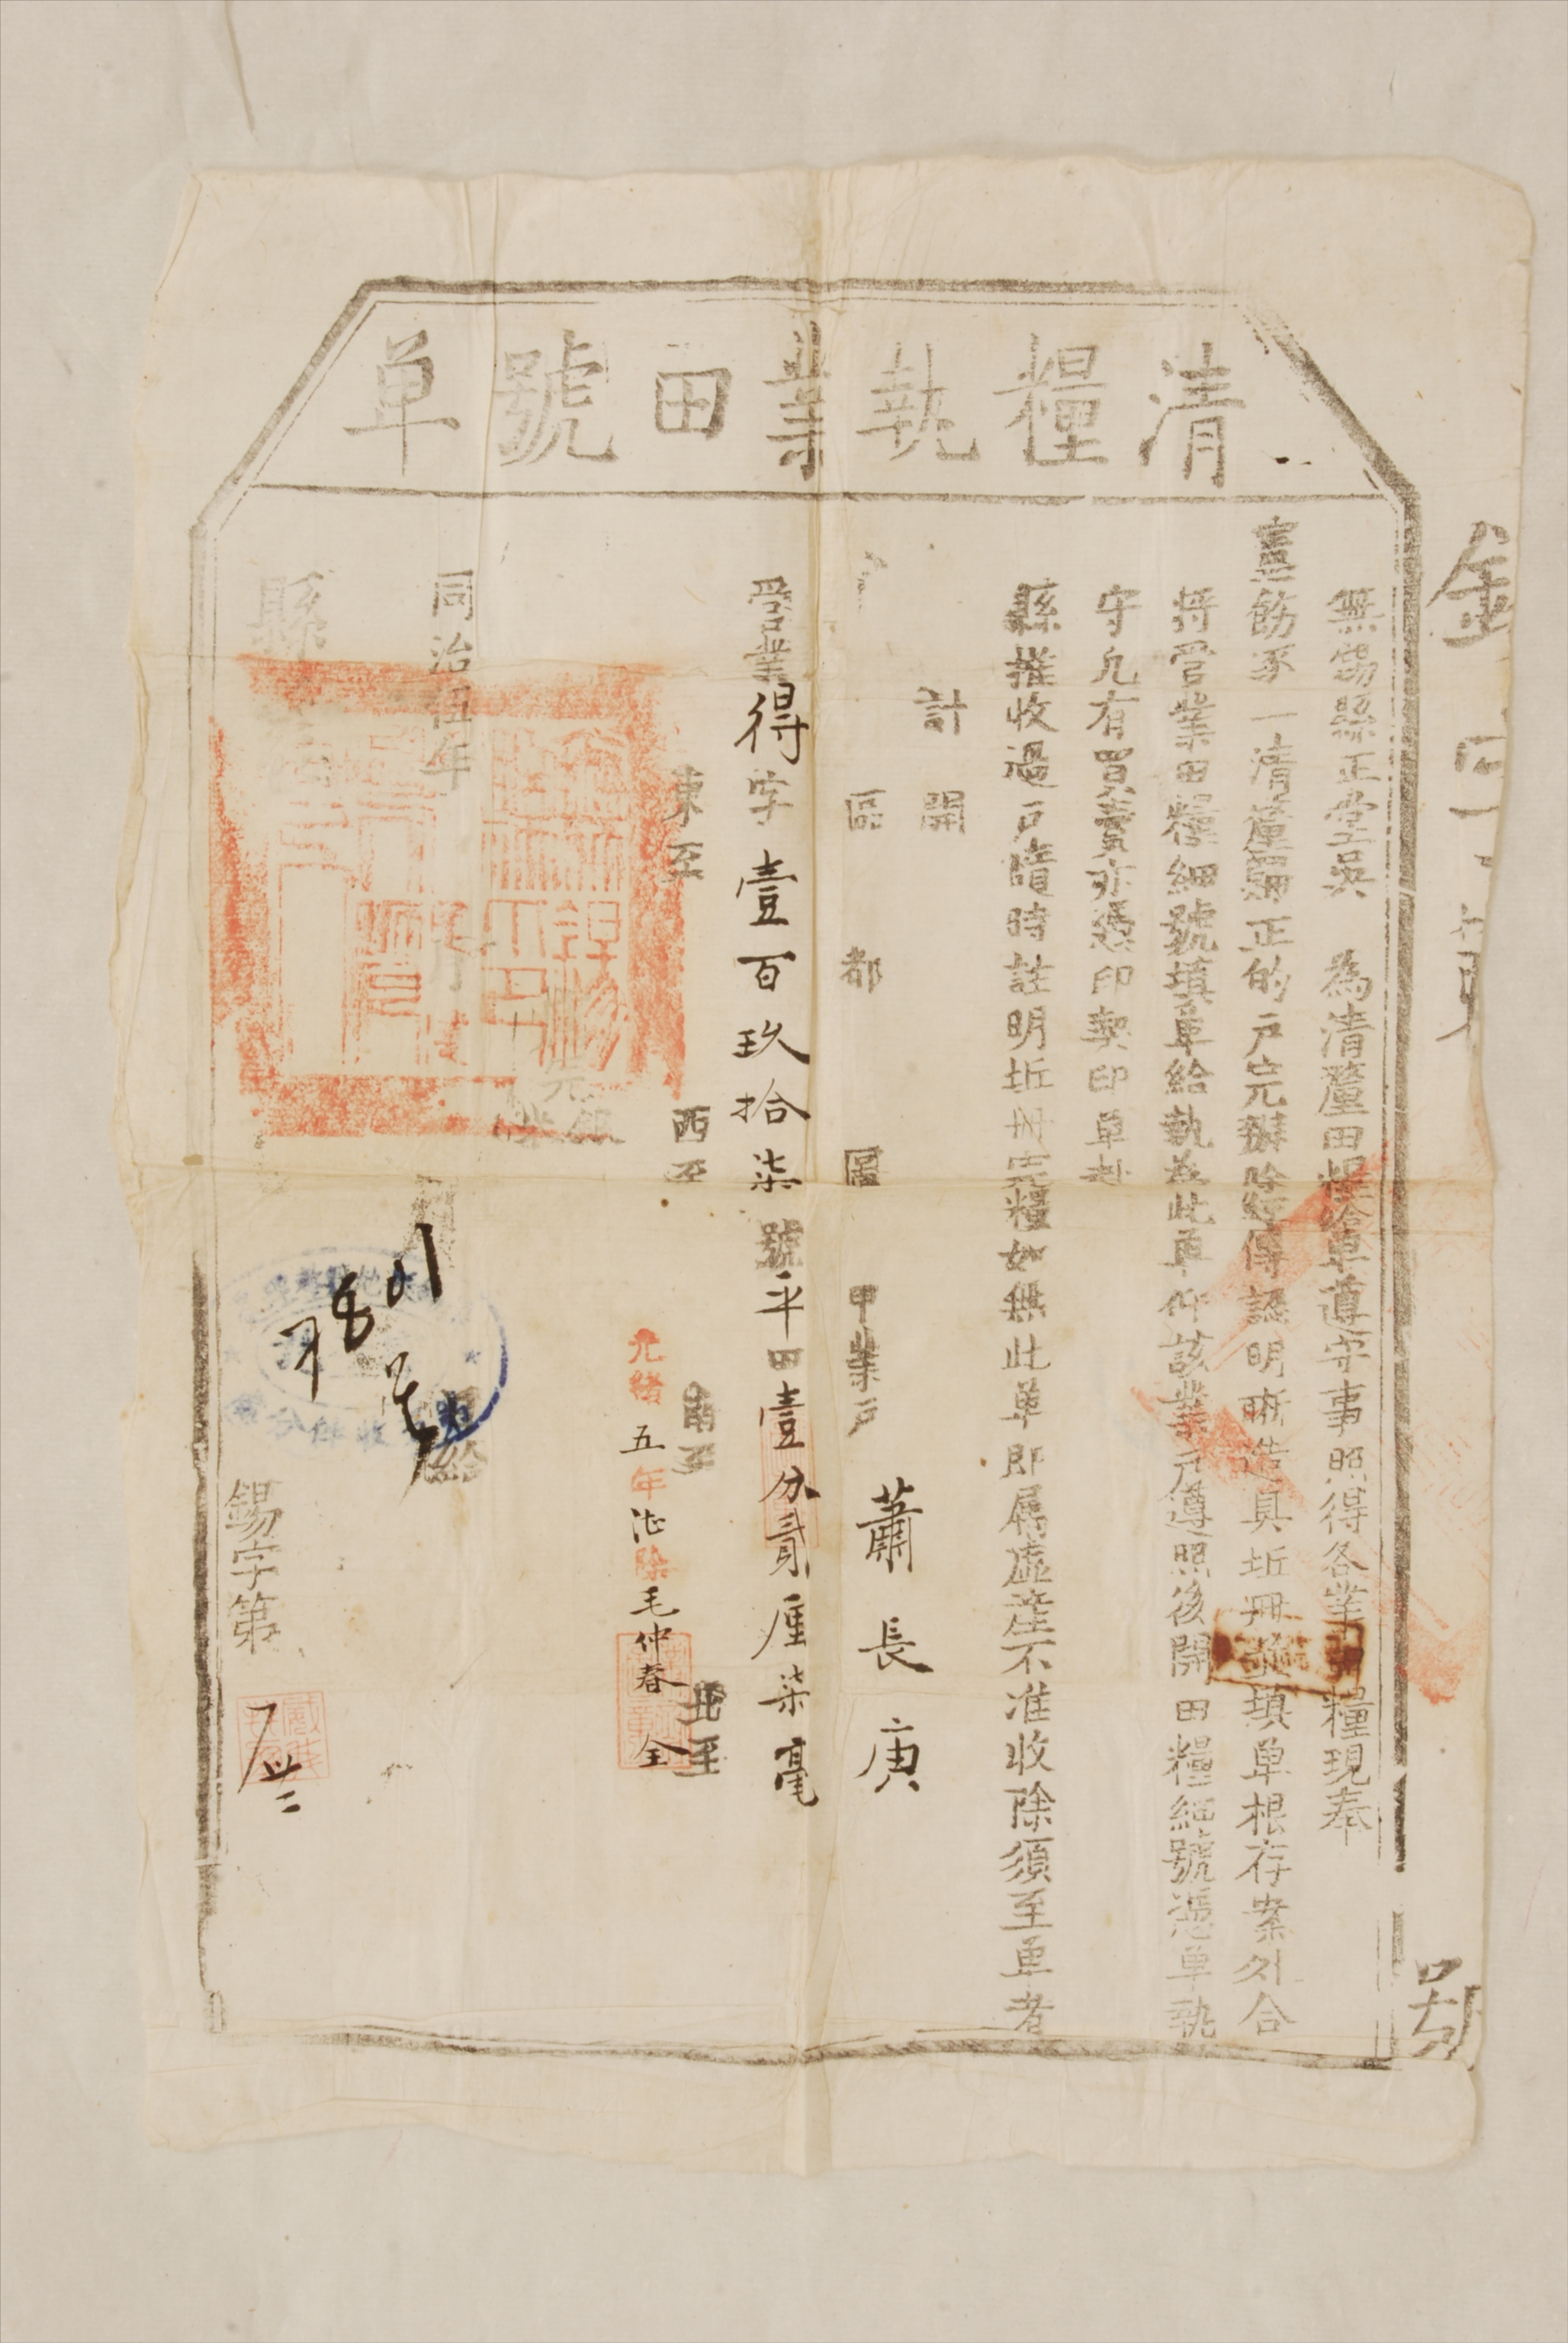 清糧執業田號單
無錫縣正堂吳 為清釐田糧給單遵守事照得各業糧現奉
憲飭逐一清釐歸正的戶完辦除傳諭明晰造具坵冊填單根存案外合
將管業田糧細號填單給執為此單仰該業戶遵照後開田糧細號憑單執
守凡有買賣亦憑印契印單赴
縣推收過戶隨時註明坵冊完糧如無此單即屬虛產不准收除須至單者
計開
區 都 圖 甲業戶 蕭長庚
管業得字壹百玖拾柒號平田壹分貳厘柒毫
東至 西至 南至 北至
光緒五年 除毛仲春 仝
同治伍年 月 給
縣
錫字第